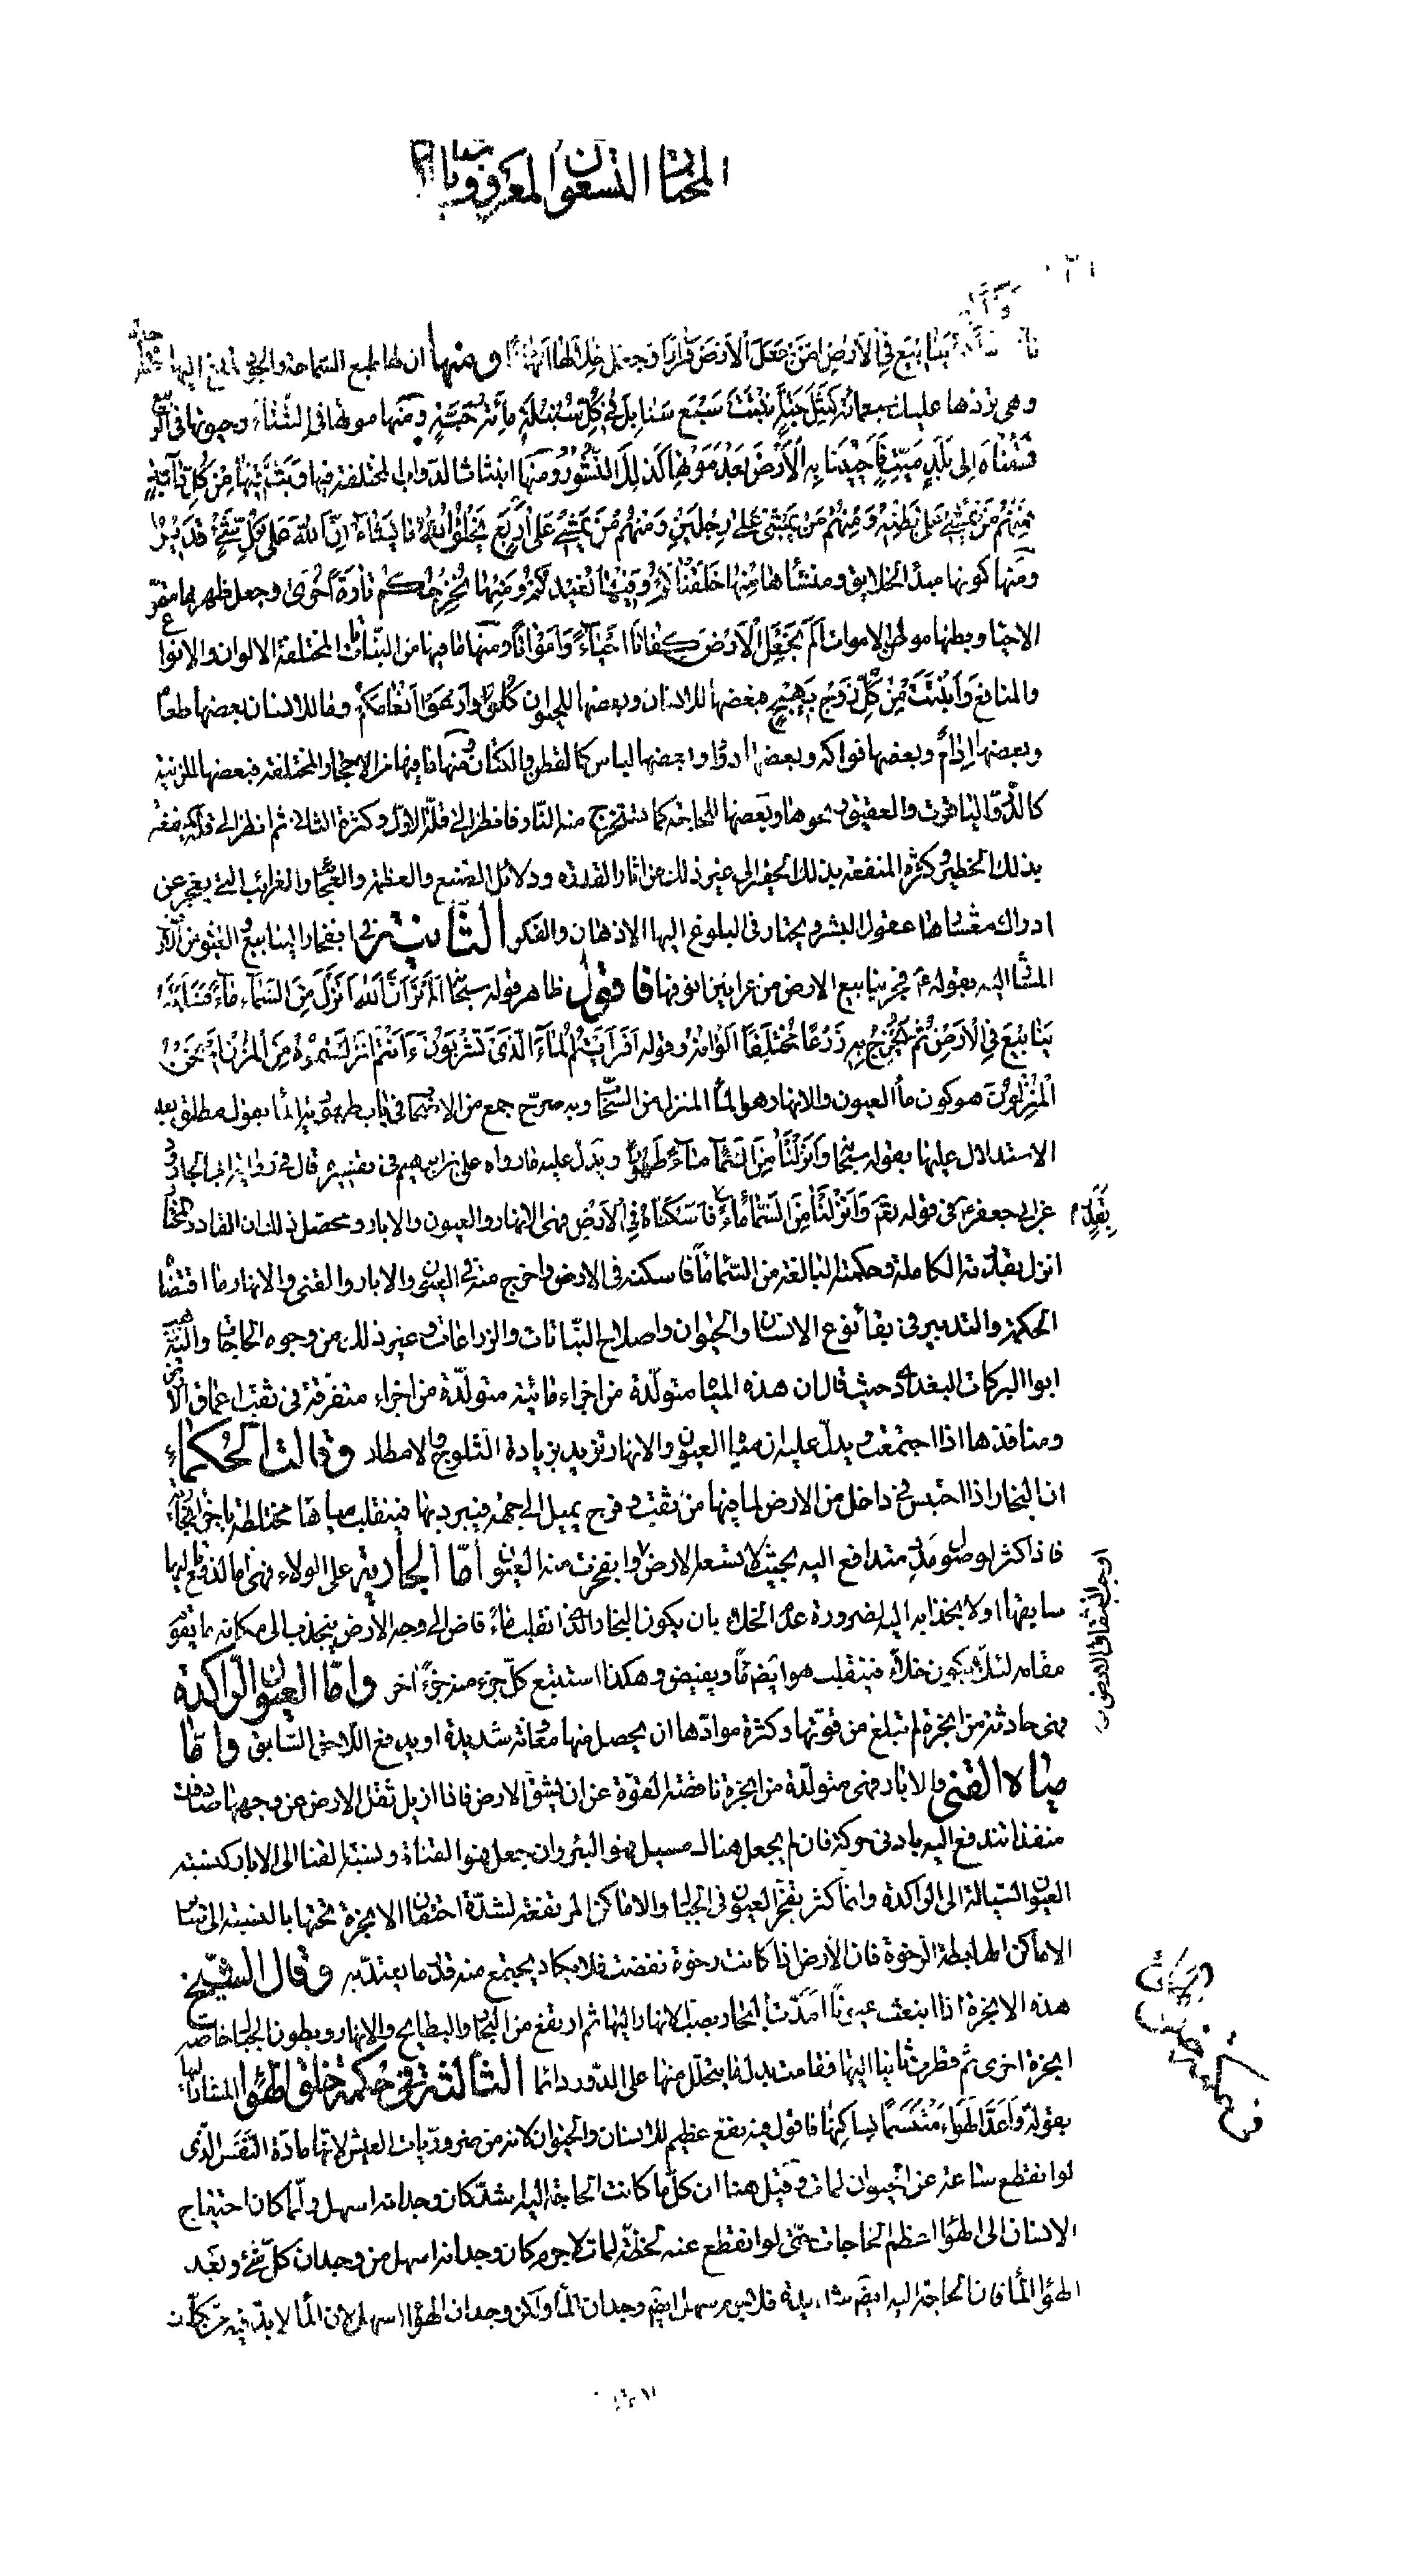 المختار التسعون المعروف
ينابيع في الأرض أمّن جعل الأرض قرارا وجعل خلالها أنهارا ومنها ان لها طبع السماحة والجود تدفع اليها حبّة
وهي تردّها عليك سبعمائة كمثل حبّة أنبتت سبع سنابل في كلّ سنبلة مأئة حبّة ومنها موتها في الشتاء وحيوتها في الرّبيع
فسقناه إلى بلد ميّت فأحيينا به الأرض بعد موتها كذلك النّشور ومنها انبثاث الدّوابّ المختلفة فيها وبثّ فيها من كلّ دآبّة
فمنهم من يمشي على بطنه ومنهم من يمشي على رجلين ومنهم من يمشي على أربع يخلق اللّه ما يشاء انّ اللّه على كلّ شيء قدير
ومنها كونها مبدأ الخلايق ومنشأها منها خلقناكم وفيها نعيدكم ومنها نخرجكم تارة أخرى وجعل ظهرها مقرّ
الاحيا وبطنها موطن الاموات ألم نجعل الأرض كفاتا أحياء وأمواتا ومنها ما فيها من النّباتات المختلفة الالوان والانواع
والمنافع وأنبتت من كلّ زوج بهيج فبعضها للانسان وبعضها للحيوان كلوا وارعوا أنعامكم وما للانسان بعضها طعام
وبعضها إدام وبعضها فواكه وبعضها دواء وبعضها لباس كالقطن والكتّان ومنها ما فيها من الاحجار المختلفة فبعضها للزينة
كالدّرّ والياقوت والعقيق ونحوها وبعضها للحاجة كما تستخرج منه النّار فانظر الى قلّة الاوّل وكثرة الثاني ثم انظر الى قلّة منفعة
بذلك الخطير وكثرة المنفعة بذلك الحقير الى غير ذلك من اثار القدرة ودلائل الصّنع والعظمة والعجائب والغرائب التي يعجز عن
ادراك معشارها عقول البشر ويحتار في البلوغ اليها الاذهان والفكر الثانية في انفجار الينابيع والعيون من الأرض
المشار اليه بقوله ع فجر ينابيع الارض من عرانين انوفها فاقول ظاهر قوله سبحانه ألم تر أنّ اللّه أنزل من السّماء ماء فسلكه
ينابيع في الأرض ثمّ يخرج به زرعا مختلفا ألوانه وقوله أفرأيتم الماء الّذي تشربون ءأنتم أنزلتموه من المزن أم نحن
المنزلون هو كون مأ العيون والانهار هو المأ المنزل من السّحاب وبه صرّح جمع من الاصحاب في باب طهوريّة الماء بقول مطلق بعد
الاستدلال عليها بقوله سبحانه وأنزلنا من السّماء ماء طهورا ويدلّ عليه ما رواه علي بن ابراهيم في تفسيره قال في رواية ابي الجارود
عن ابي جعفر ع في قوله تعالى وأنزلنا من السّماء ماء بقدر فأسكنّاه في الأرض فهي الانهار والعيون والابار ومحصّل ذلك ان القادر المختار
انزل بقدرته الكاملة وحكمته البالغة من السّماء ماءً فاسكنه في الارض واخرج منه في العيون والابار والقنى والانهار ما اقتضاه
الحكمة والتدبير في بقاء نوع الانسان والحيوان واصلاح النّباتات والزراعات وغير ذلك من وجوه الحاجات واليه ذهب
ابو البركات البغدادي حيث قال ان هذه المياه متولّدة من اجزاء مائيّة متولّدة من اجزاء متفرّقة في ثقب اعماق الارض
ومنافذها اذا اجتمعت ويدلّ عليه ان مياه العيون والانهار تزيد بزيادة الثلوج والامطار وقالت الحكماء
ان البخار اذا احتبس في داخل من الارض لما فيها من ثقب وفرج يميل الى جهة فيبرد بها فينقلب مياها مختلطة باجزاء بخارية
فاذا كثر لوصول مدد متدافع اليه بحيث لا تسعه الارض اوجب انشقاق الارض وانفجرت منه العيون أمّا الجارية على الولاء فهي امّا لدفع تاليها
سابقها او لانجذابه اليه لضرورة عدم الخلاء بان يكون البخار الّذي انقلب ماء فاض الى وجه الأرض ينجذب الى مكانه ما يقوم
مقامه لئلا يكون خلاء فينقلب هو ايضا ماء ويفيض وهكذا استتبع كلّ جزء منه جزءً اخر وامّا العيون الرّاكدة
فهي حادثة من ابخرة لم تبلغ من قوّتها وكثرة موادّها ان يحصل منها معاونة شديدة او يدفع اللّاحق السّابق وامّا
مياه القنى والابار فهي متولّدة من ابخرة ناقصة القوّة عن ان يشقّ الارض فاذا ازيل ثقل الارض عن وجهها صادفت
منفذا تندفع اليه بادنى حركة فان لم يجعل هناك مسيل فهو البئر وان جعل فهو القناة ونسبة القنا الى الابار كنسبة
العيون السّيالة الى الراكدة وانّما كثر تفجّر العيون في الجبال والاماكن المرتفعة لشدّة احتقان الابخرة تحتها بالنسبة الى ساير
الاماكن الهابطة الرخوة فان الأرض اذا كانت رخوة نفضت فلا يكاد يجتمع منه قدر ما يعتدّ به وقال الشيخ
هذه الابخرة اذا انبعثت عيونا امدّت البحار بصبّ الانهار اليها ثم ارتفع من البحار والبطايح والانهار وبطون الجبال خاصّة
ابخرة اخرى ثم قطرت ثانيا اليها فقامت بدل ما يتحلّل منها على الدّور دائما الثالثة في حكمة خلق الهواء المشار اليها
بقوله واعدّ الهواء متنسّما لساكنها فاقول فيه نفع عظيم للانسان والحيوان كانه من ضروريّات العيش لانها مادّة النّفس الّذي
لو انقطع ساعة عن الحيوان لمات وقيل هنا ان كلّ ما كانت الحاجة اليه اشدّ كان وجدانه اسهل ولمّا كان احتياج
الانسان الى الهواء اعظم الحاجات حتّى لو انقطع عنه لحظة لمات لا جرم كان وجدانه اسهل من وجدان كلّ شيء وبعد
الهواء الماء فان الحاجة اليه ايضا شديدة فلا جرم سهل ايضا وجدان الماء ولكن وجدان الهواء اسهل لان الماء لا بدّ فيه من تكلّف